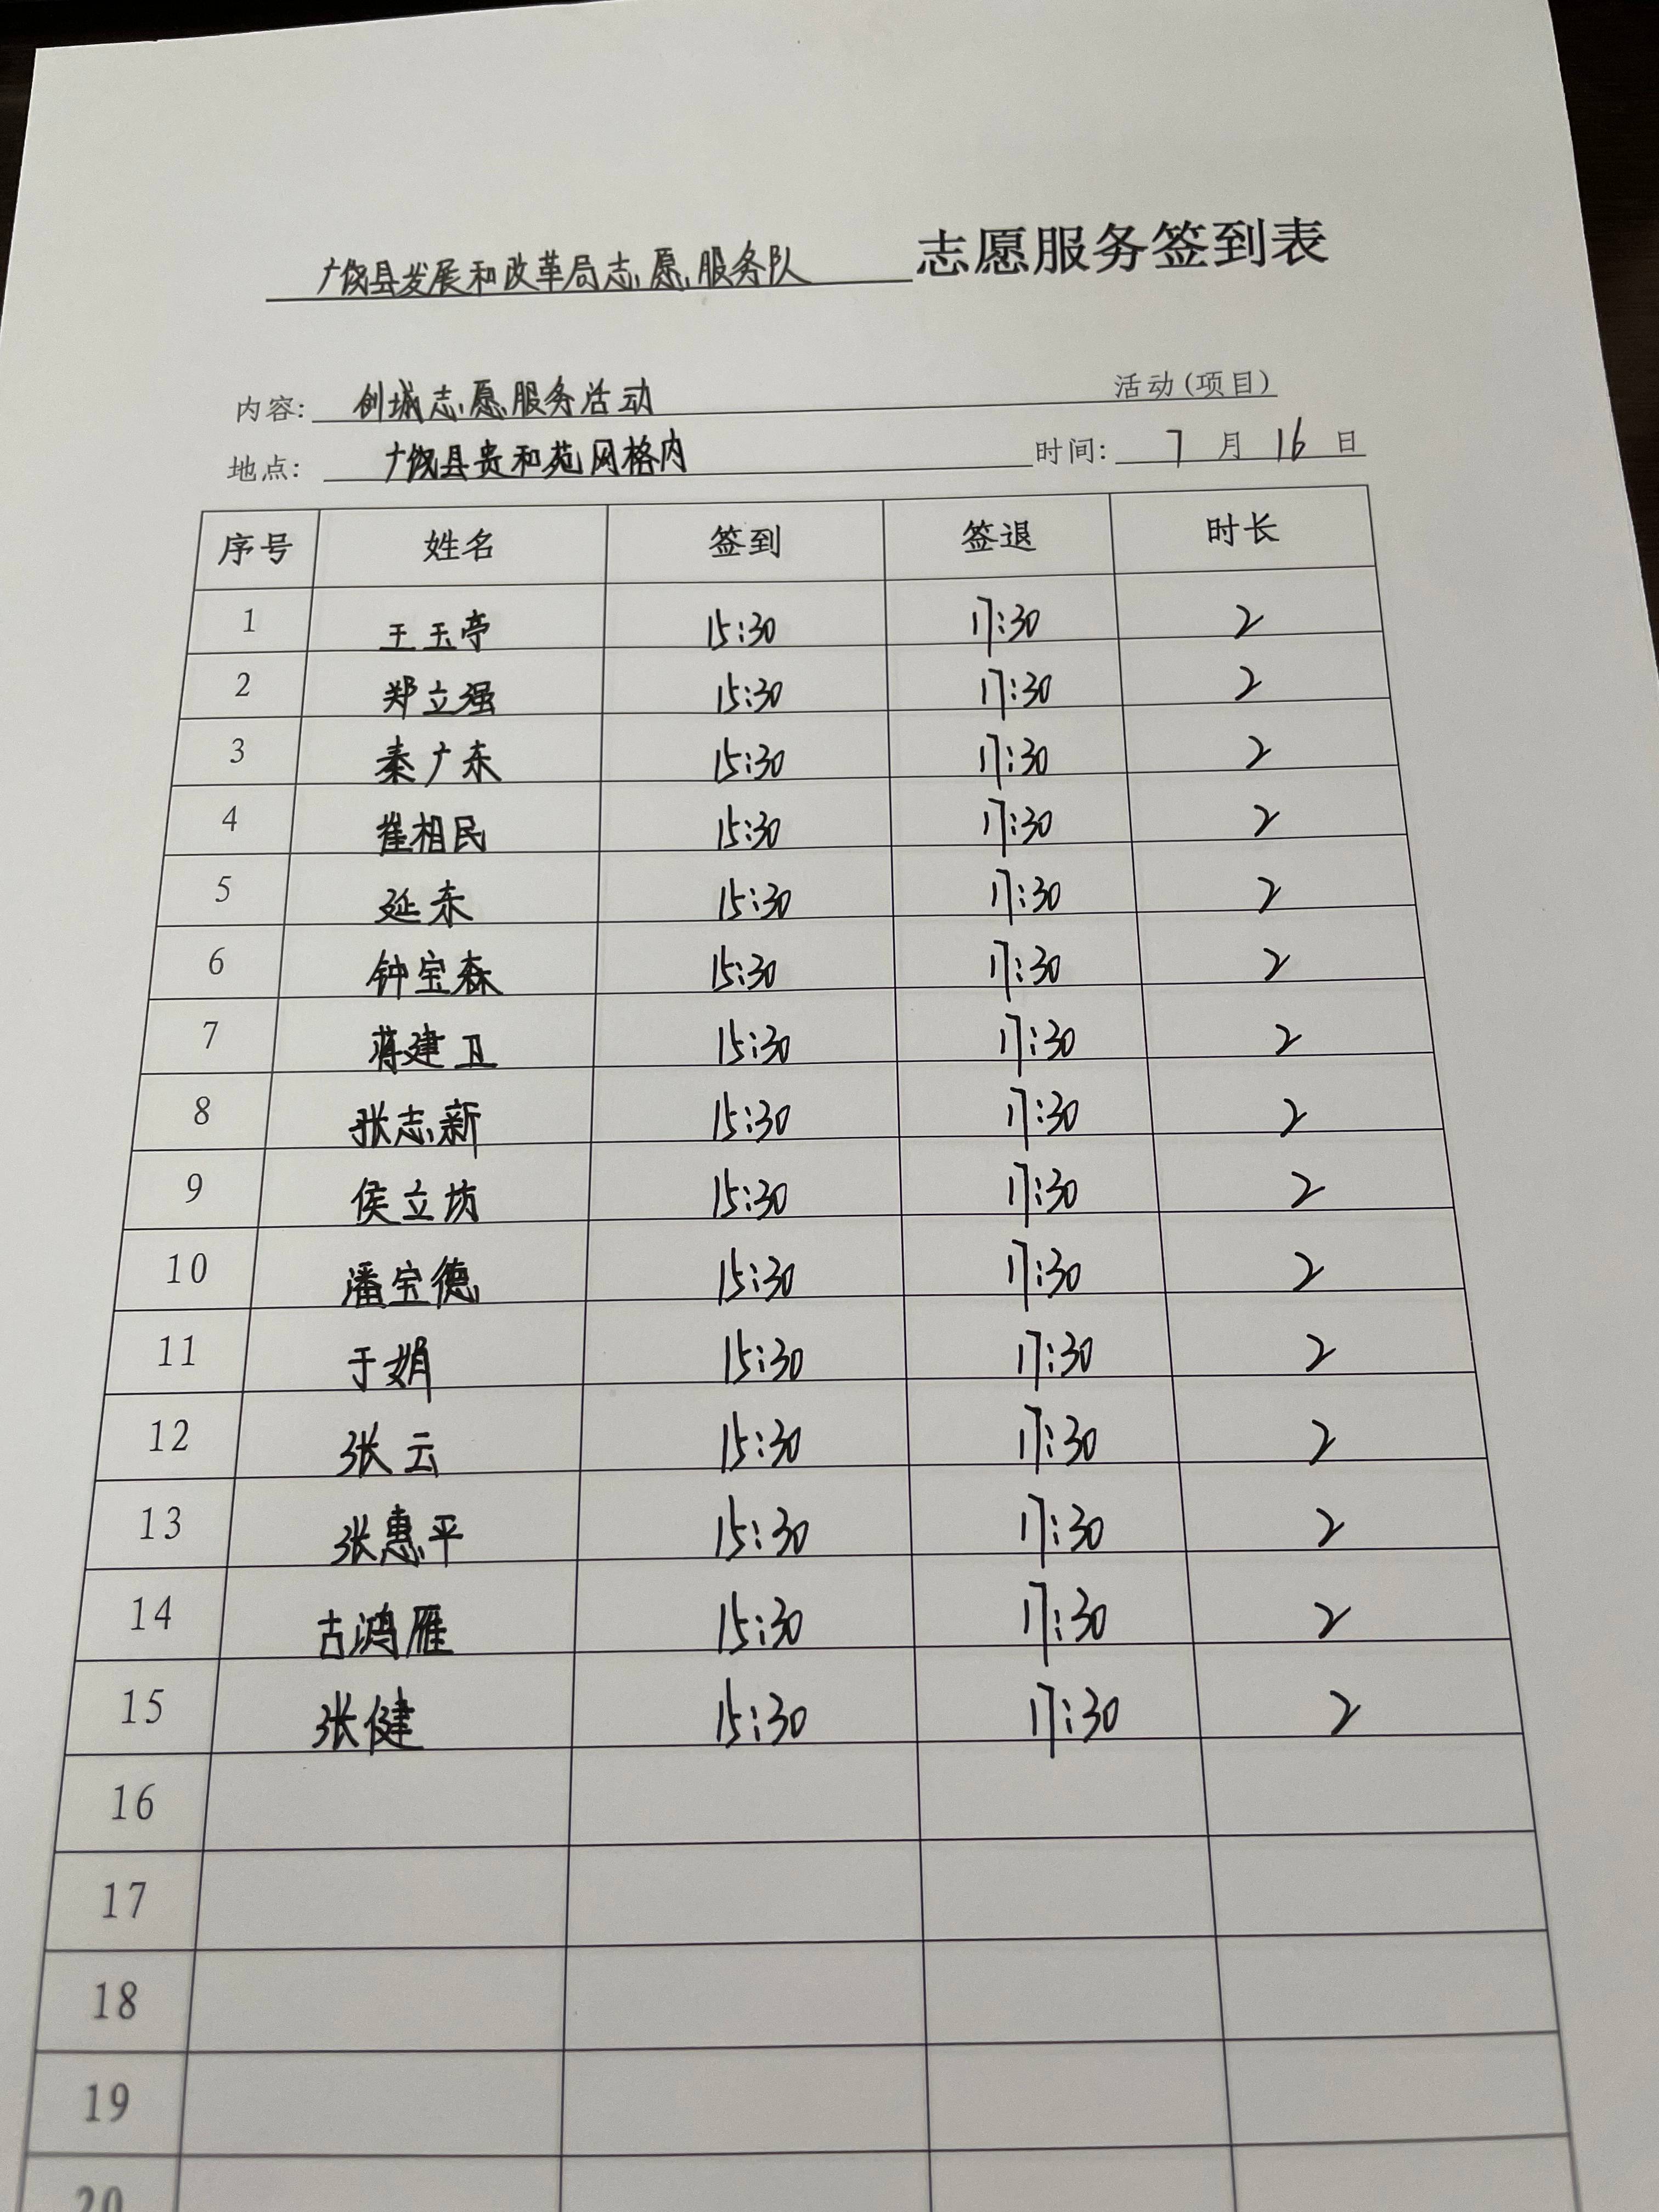 广饶县发展和改革局志愿服务队 志愿服务签到表
内容: 创城志愿服务活动 活动(项目)
地点: 广饶县贵和苑网格内 时间: 7 月 16 日
序号 姓名 签到 签退 时长
1 王玉亭 15:30 17:30 2
2 郑立强 15:30 17:30 2
3 秦广东 15:30 17:30 2
4 崔相民 15:30 17:30 2
5 延东 15:30 17:30 2
6 钟宝森 15:30 17:30 2
7 蒋建卫 15:30 17:30 2
8 张志新 15:30 17:30 2
9 侯立坊 15:30 17:30 2
10 潘宝德 15:30 17:30 2
11 于娟 15:30 17:30 2
12 张云 15:30 17:30 2
13 张惠平 15:30 17:30 2
14 古鸿雁 15:30 17:30 2
15 张健 15:30 17:30 2
16
17
18
19
20